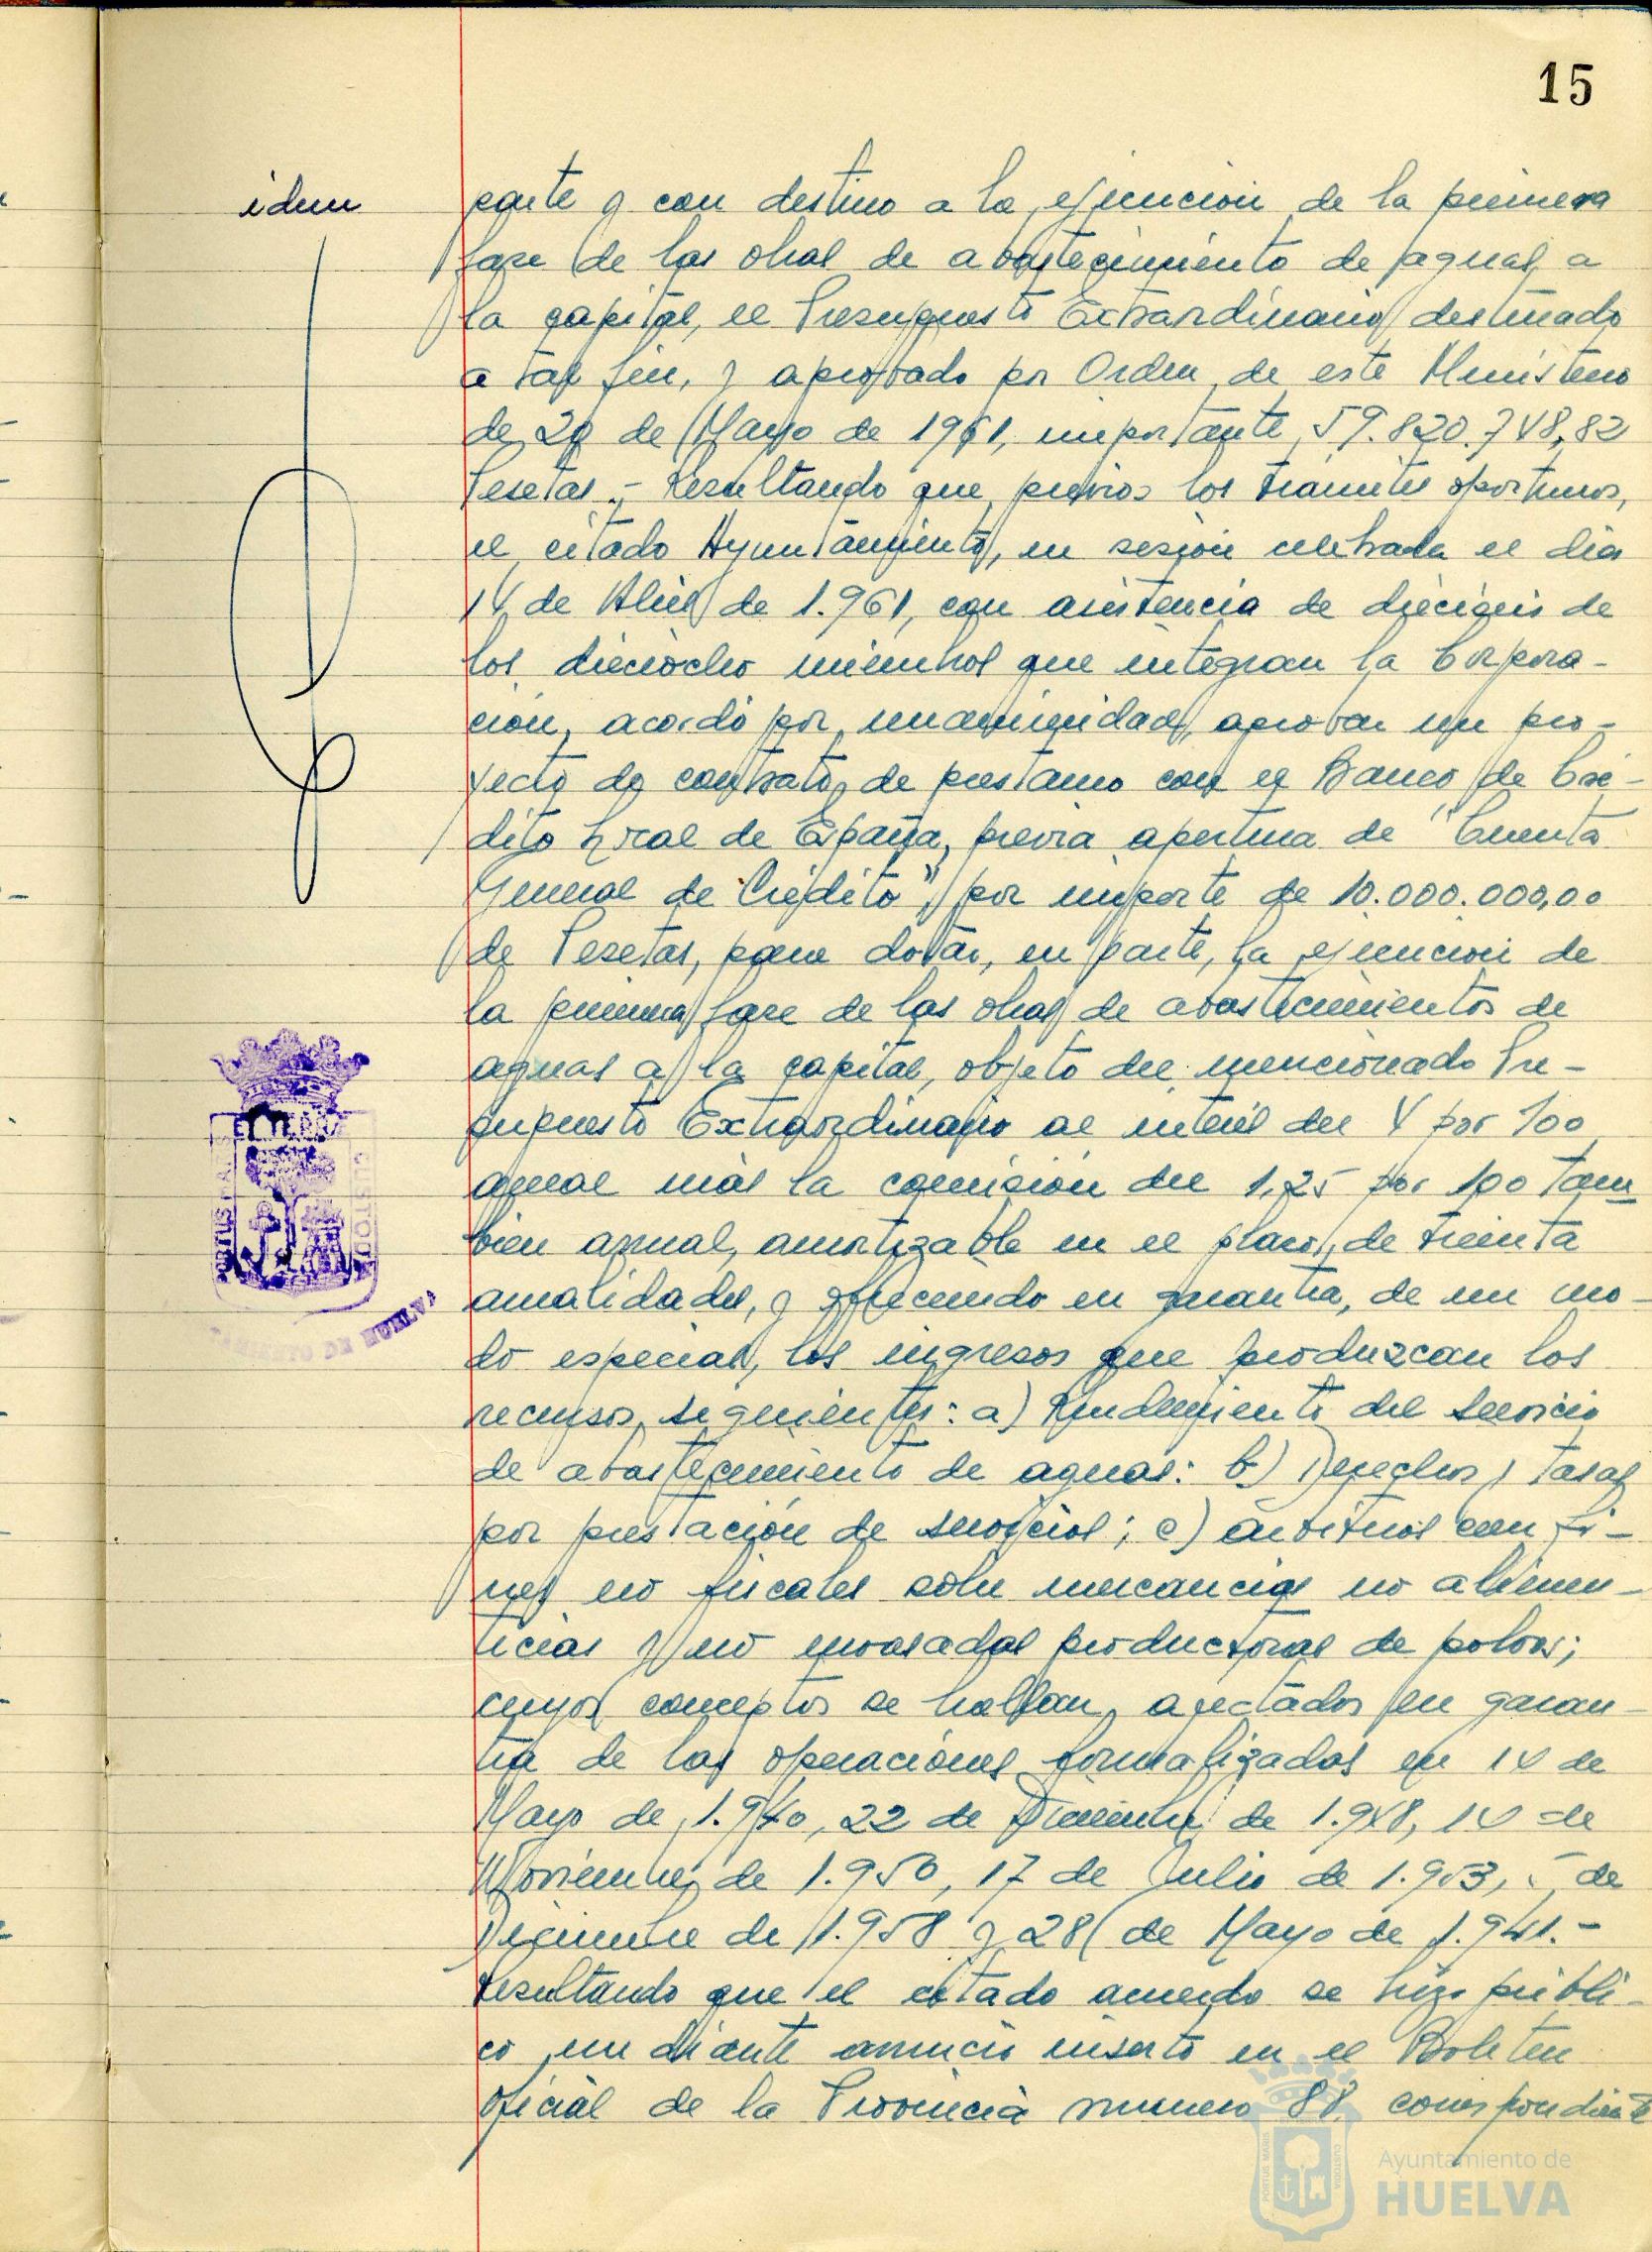 15
idem
parte y con destino a la ejecución de la primera
fase de las obras de abastecimiento de aguas a
la capital, el Presupuesto Extraordinario destinado
a tal fin, y aprobado por Orden de este Ministerio
de 20 de Mayo de 1961, importante 59.820.748,82
Pesetas.- Resultando que, previos los trámites oportunos,
el citado Ayuntamiento, en sesión celebrada el día
14 de Abril de 1.961, con asistencia de dieciseis de
los dieciocho miembros que integran la Corpora-
ción, acordó por unanimidad, aprobar un pro-
yecto de contrato de prestamo con el Banco de Cré-
dito Local de España, previa apertura de "Cuenta
General de Crédito", por importe de 10.000.000,00
de Pesetas, para dotar, en parte, la ejecución de
la primera fase de las obras de abastecimientos de
aguas a la capital, objeto del mencionado Pre-
supuesto Extraordinario al interés del 4 por 100
anual más la comisión del 1,25 por 100 tam
bien anual, amortizable en el plazo, de treinta
anualidades, y ofreciendo en garantía, de un mo-
do especial, los ingresos que produzcan los
recursos siguientes: a) Rendimiento del servicio
de abastecimiento de aguas: b) Derechos y tasas
por prestación de servicios; c) arbitrios con fi-
nes no fiscales sobre mercancías no alimen-
ticias y no envasadas productoras de polvos;
cuyos conceptos se hallan afectados en garan-
tía de las operaciones formalizadas en 14 de
Mayo de 1.940, 22 de Diciembre de 1.948, 14 de
Noviembre de 1.950, 17 de Julio de 1.953, 5 de
Diciembre de 1.958 y 28 de Mayo de 1.941.-
Resultando que el citado acuerdo se hizo públi-
co mediante anuncio inserto en el Boletin
Oficial de la Provincia numero 88 correspondiente
PORTUS MARIS
CUSTODIA
AYUNTAMIENTO DE HUELVA
Ayuntamiento de
HUELVA